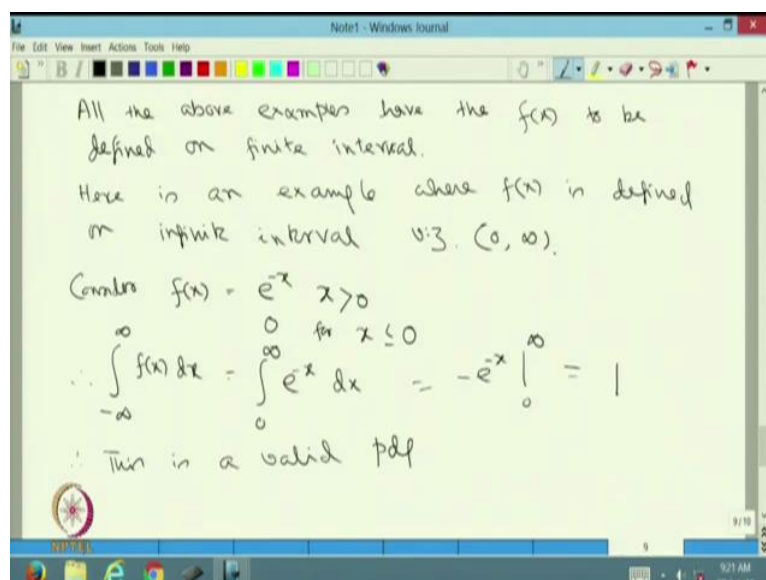 Note1 - Windows Journal
File Edit View Insert Actions Tools Help
B I
All the above examples have the f(x) to be
defined on finite interval.
Here is an example where f(x) is defined
on infinite interval viz. (0, ∞).
Consider f(x) = e^{-x} x>0
0 for x ≤ 0
∴ ∫_{-∞}^{∞} f(x) dx = ∫_{0}^{∞} e^{-x} dx = -e^{-x} |_{0}^{∞} = 1
∴ This is a valid pdf
NPTEL
9/10
9
9:21 AM